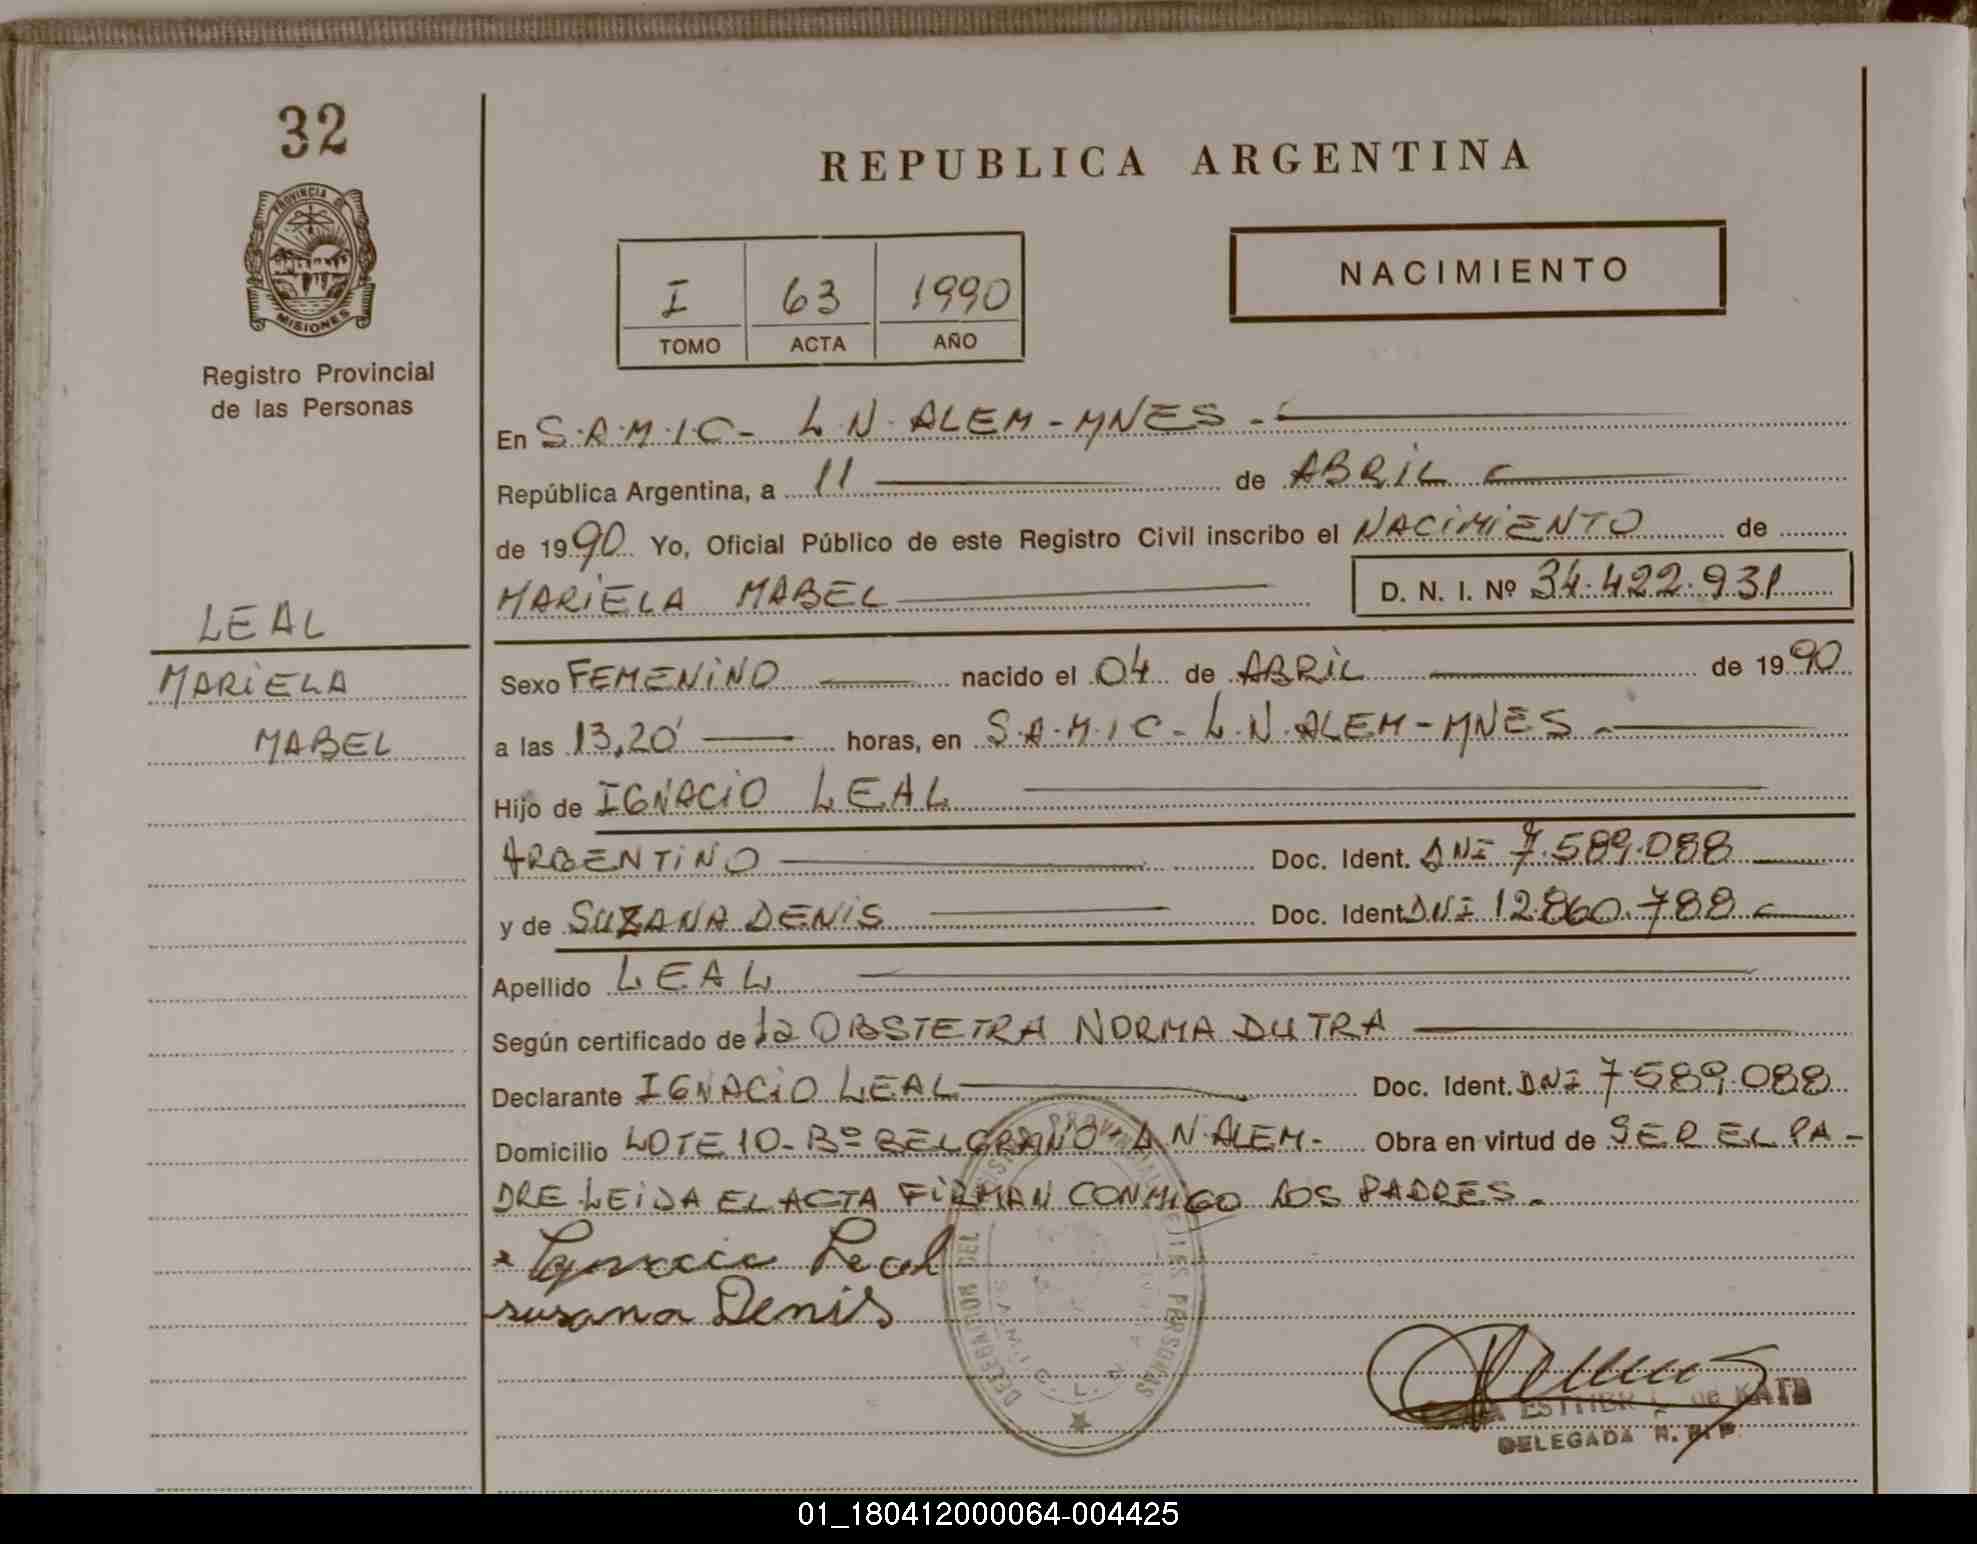 32
PROVINCIA DE
MISIONES
Registro Provincial
de las Personas
REPUBLICA ARGENTINA
NACIMIENTO
I 63 1990
TOMO ACTA AÑO
En S.A.M.I.C- L.N. ALEM-MNES-
República Argentina, a 11 de ABRIL
de 1990 Yo, Oficial Público de este Registro Civil inscribo el NACIMIENTO de
MARIELA MABEL D. N. I. Nº 34.422.931
LEAL
MARIELA
MABEL
Sexo FEMENINO nacido el 04 de ABRIL de 1990
a las 13,20' horas, en S.A.M.I C- L.N. ALEM-MNES-
Hijo de IGNACIO LEAL
ARGENTINO Doc. Ident. DNI 7.589.088
y de SUZANA DENIS Doc. Ident. DNI 12.860.788
Apellido LEAL
Según certificado de la OBSTETRA NORMA DUTRA
Declarante IGNACIO LEAL Doc. Ident. DNI 7.589.088
Domicilio LOTE 10-Bº BELGRANO-L N.ALEM- Obra en virtud de SER EL PA-
DRE LEIDA EL ACTA FIRMAN CONMIGO LOS PADRES.
Ignacio Leal
susana Denis
DELEGACION DEL PROVINCIAL DE LAS PERSONAS
ESTHER de
DELEGADA R. P. P.
01_180412000064-004425